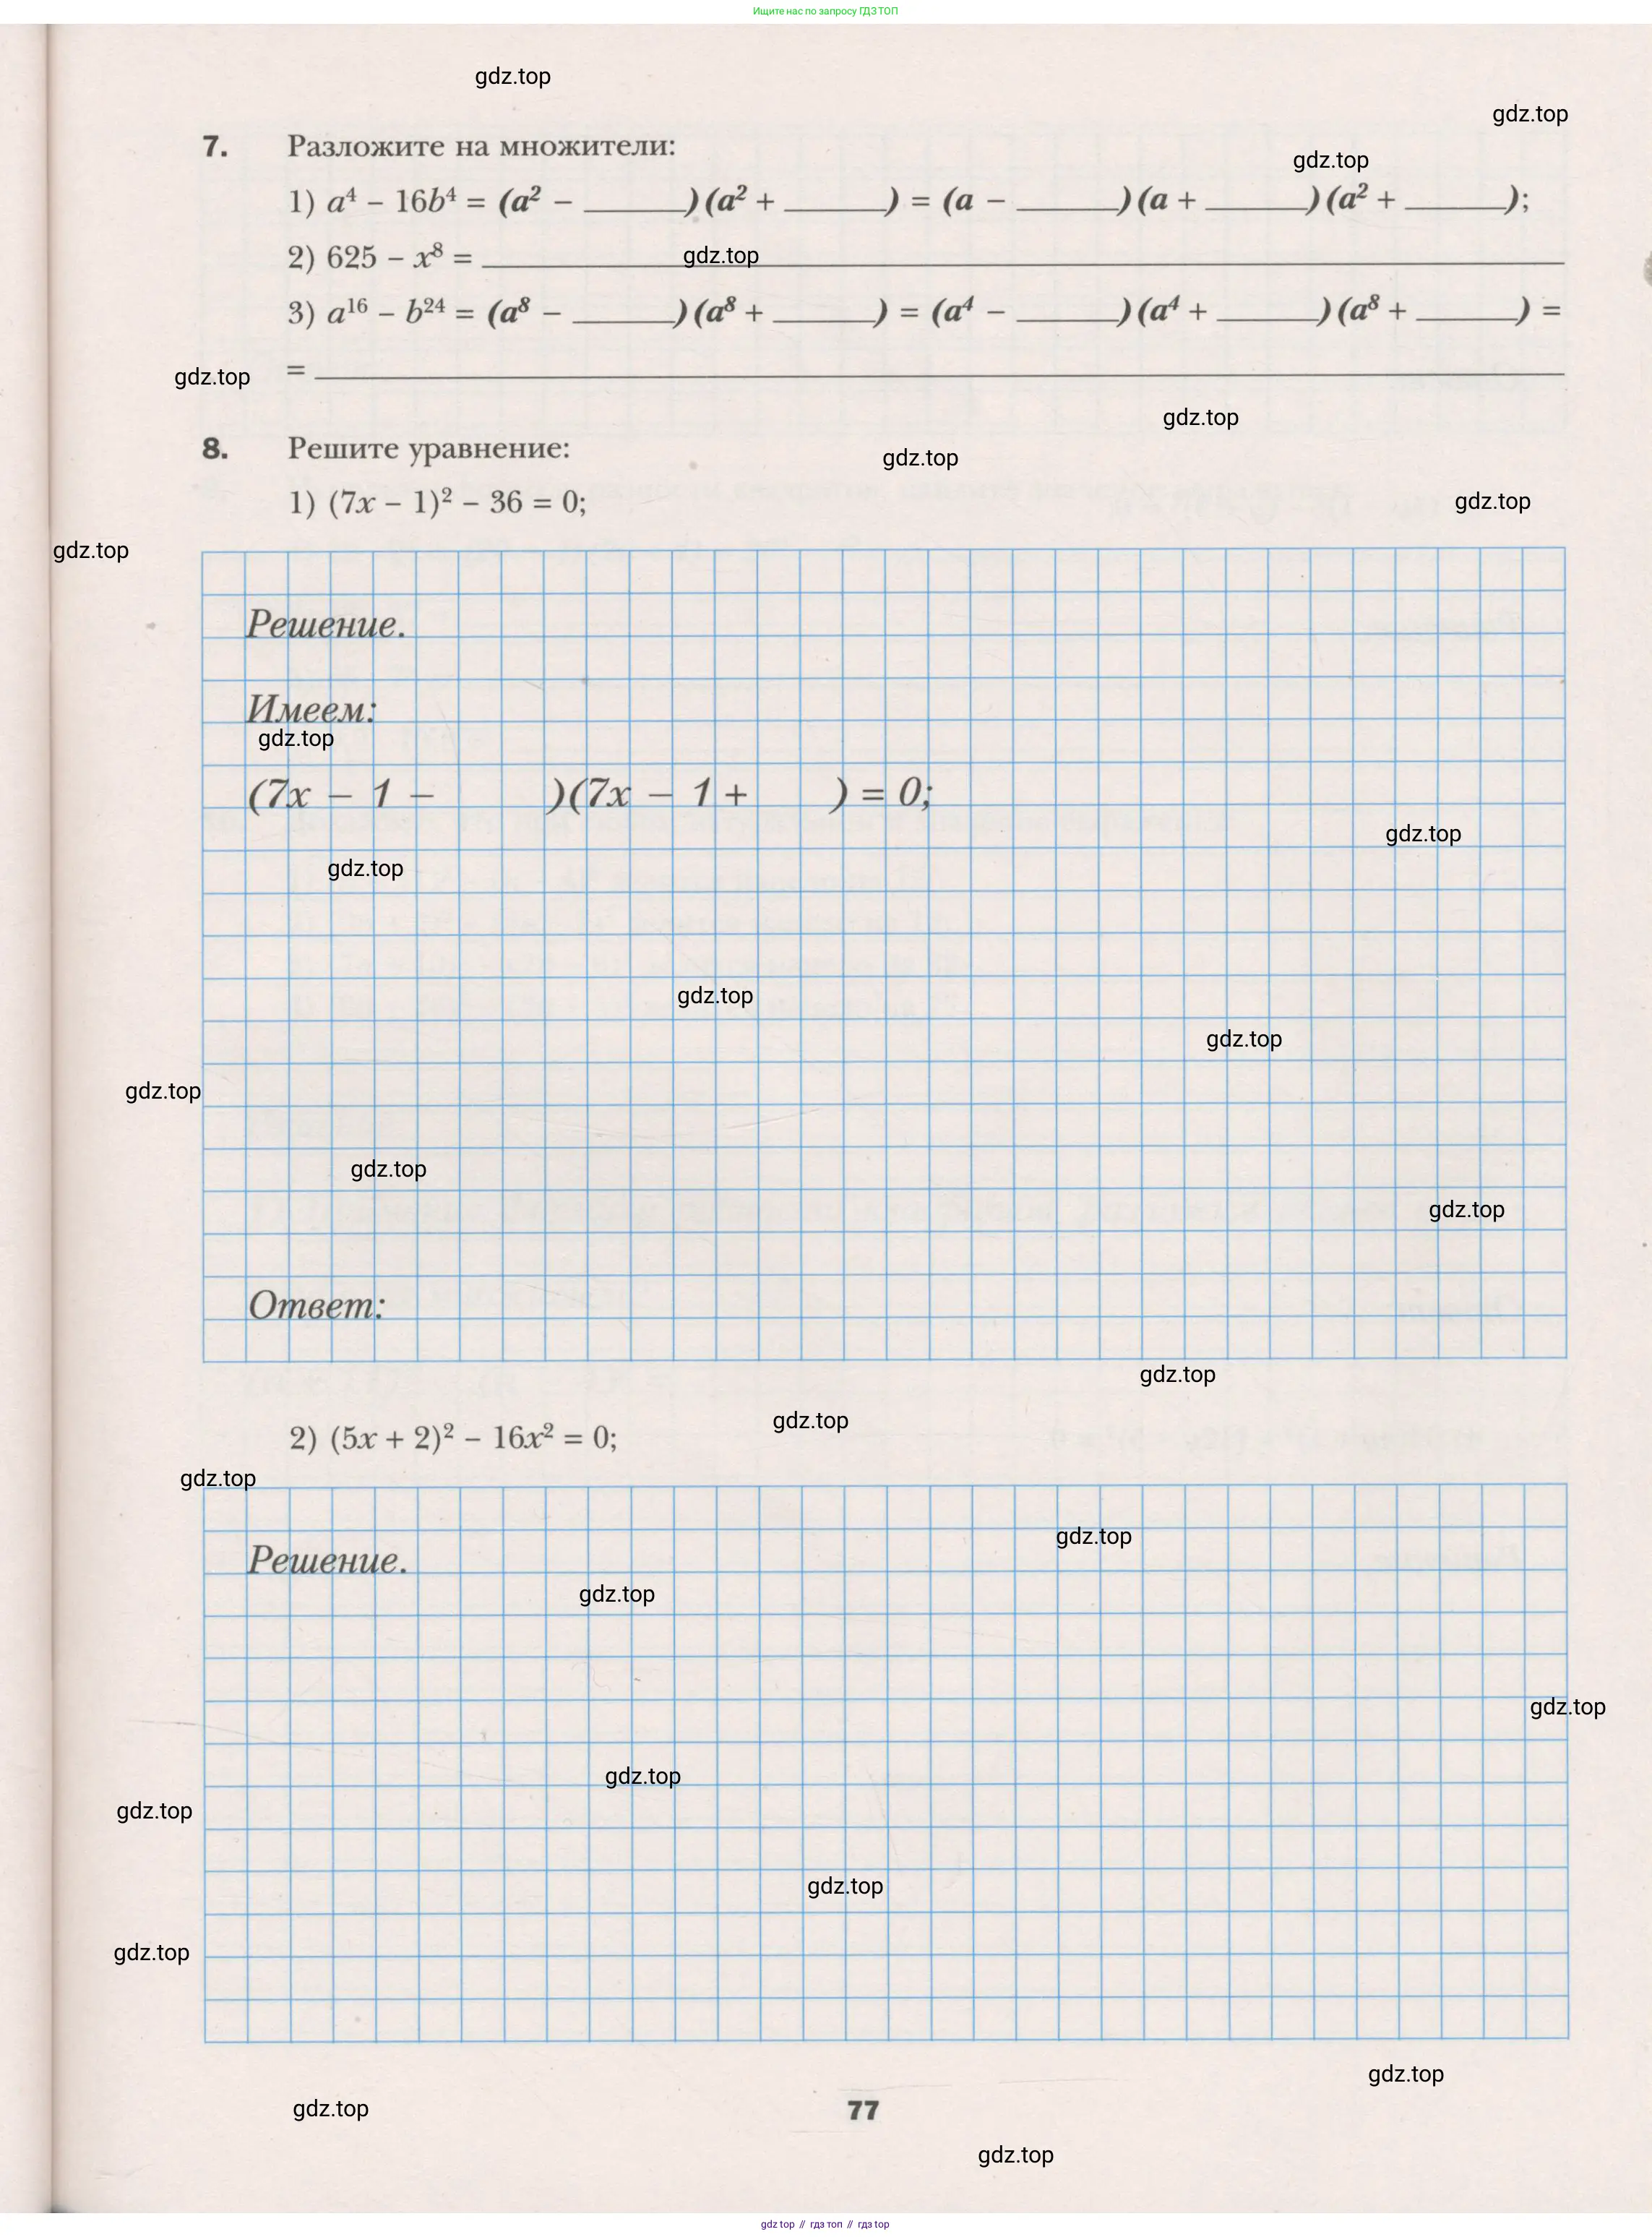 Ищите нас по запросу ГДЗ ТОП
gdz.top
gdz.top
7. Разложите на множители:
gdz.top
1) a⁴ – 16b⁴ = (a² – ______)(a² + ______) = (a – ______)(a + ______)(a² + ______);
2) 625 – x⁸ = ______
gdz.top
3) a¹⁶ – b²⁴ = (a⁸ – ______)(a⁸ + ______) = (a⁴ – ______)(a⁴ + ______)(a⁸ + ______) =
= ______
gdz.top
gdz.top
8. Решите уравнение:
gdz.top
1) (7x – 1)² – 36 = 0;
gdz.top
gdz.top
Решение.
Имеем:
gdz.top
(7x – 1 – )(7x – 1 + ) = 0;
gdz.top
gdz.top
gdz.top
gdz.top
gdz.top
gdz.top
gdz.top
Ответ:
gdz.top
gdz.top
2) (5x + 2)² – 16x² = 0;
gdz.top
gdz.top
Решение.
gdz.top
gdz.top
gdz.top
gdz.top
gdz.top
gdz.top
gdz.top
gdz.top
77
gdz.top
gdz.top // гдз топ // гдз top